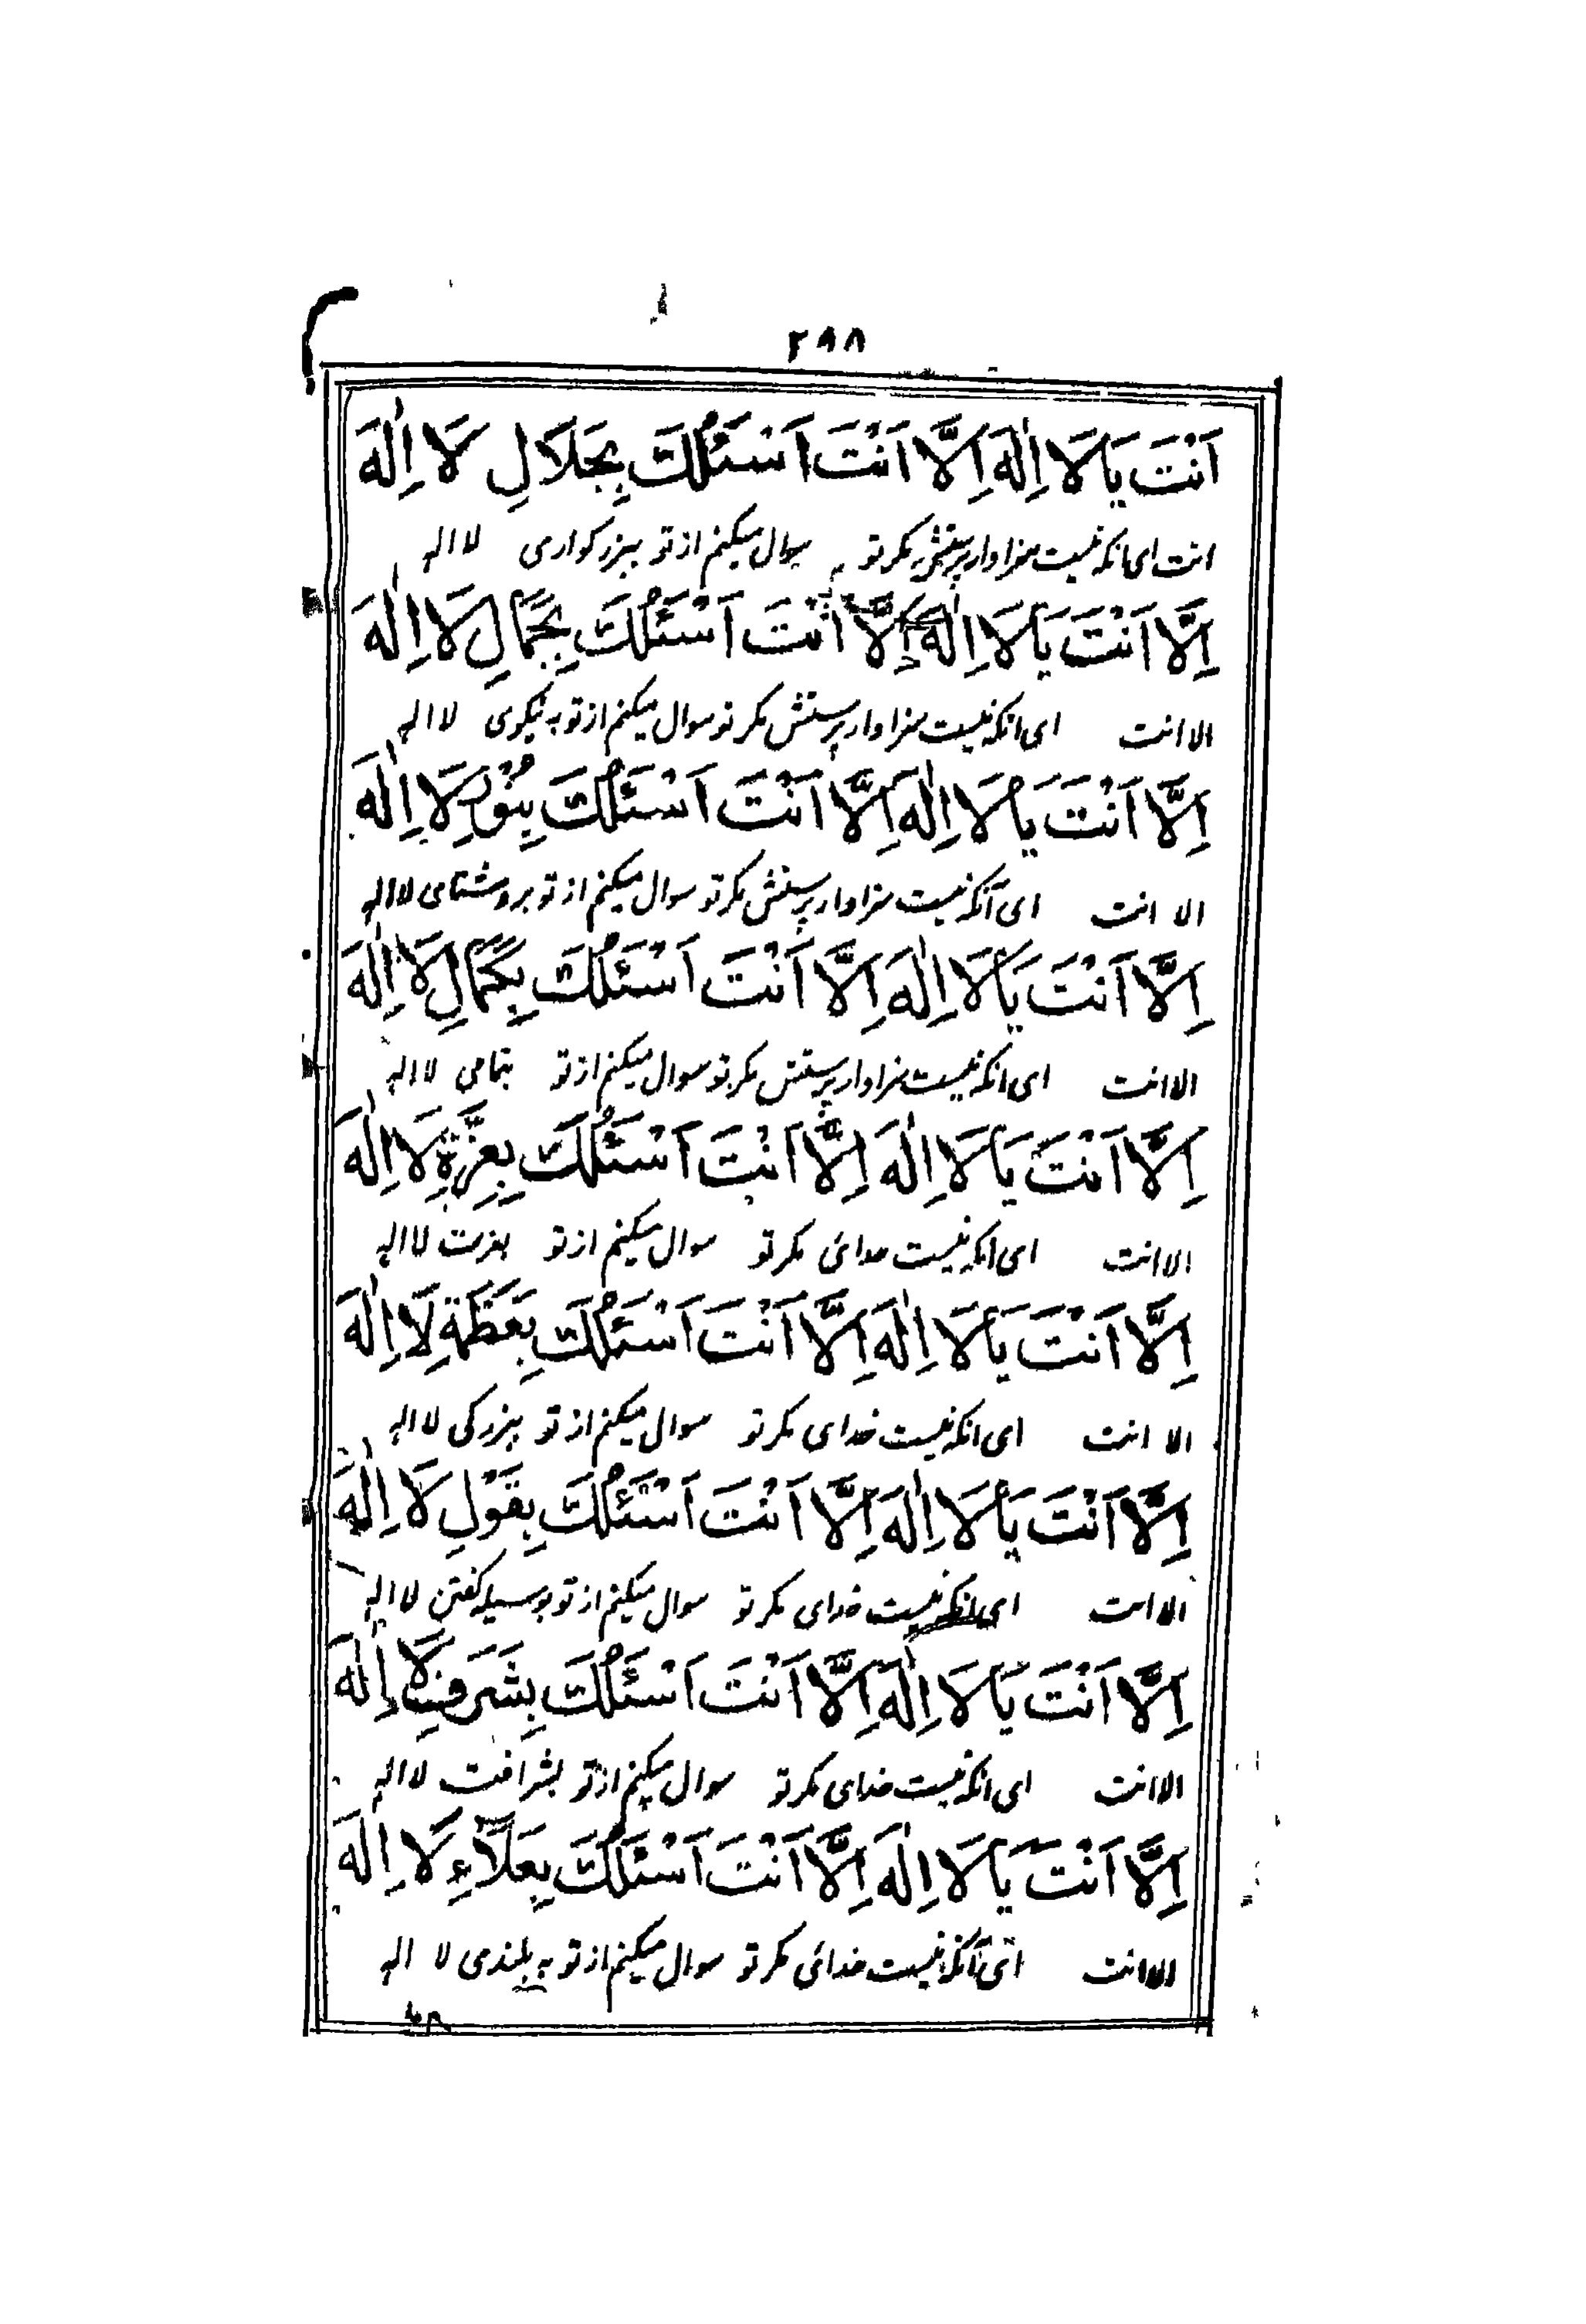 ۲۹۸
اَنْتَ يَا لَا اِلٰهَ اِلَّا اَنْتَ اَسْئَلُكَ بِجَلَالِ لَا اِلٰهَ
انت ای انکه نیست سزاوار پرستش مکر تو سوال میکنم از تو ببزرکواری لا اله
اِلَّا اَنْتَ يَا لَا اِلٰهَ اِلَّا اَنْتَ اَسْئَلُكَ بِجَمَالِ لَا اِلٰهَ
الا انت ای انکه نیست سزاوار پرستش مکر تو سوال میکنم از تو به نیکوی لا اله
اِلَّا اَنْتَ يَا لَا اِلٰهَ اِلَّا اَنْتَ اَسْئَلُكَ بِنُوْرِ لَا اِلٰهَ
الا انت ای آنکه نیست سزاوار پرستش مکر تو سوال میکنم از تو بروشنای لا اله
اِلَّا اَنْتَ يَا لَا اِلٰهَ اِلَّا اَنْتَ اَسْئَلُكَ بِكَمَالِ لَا اِلٰهَ
الا انت ای انکه نیست سزاوار پرستش مکر تو سوال میکنم از تو بتمامی لا اله
اِلَّا اَنْتَ يَا لَا اِلٰهَ اِلَّا اَنْتَ اَسْئَلُكَ بِعِزَّةِ لَا اِلٰهَ
الا انت ای انکه نیست خدائی مکر تو سوال میکنم از تو بعزت لا اله
اِلَّا اَنْتَ يَا لَا اِلٰهَ اِلَّا اَنْتَ اَسْئَلُكَ بِعَظَمَةِ لَا اِلٰهَ
الا انت ای انکه نیست خدای مکر تو سوال میکنم از تو ببزرکی لا اله
اِلَّا اَنْتَ يَا لَا اِلٰهَ اِلَّا اَنْتَ اَسْئَلُكَ بِقَوْلِ لَا اِلٰهَ
الا انت ای انکه نیست خدای مکر تو سوال میکنم از تو بوسیله کفتن لا اله
اِلَّا اَنْتَ يَا لَا اِلٰهَ اِلَّا اَنْتَ اَسْئَلُكَ بِشَرَفِ لَا اِلٰهَ
الا انت ای انکه نیست خدای مکر تو سوال میکنم از تو بشرافت لا اله
اِلَّا اَنْتَ يَا لَا اِلٰهَ اِلَّا اَنْتَ اَسْئَلُكَ بِعَلَآءِ لَا اِلٰهَ
الا انت ای آنکه نیست خدائی مکر تو سوال میکنم از تو به بلندی لا اله